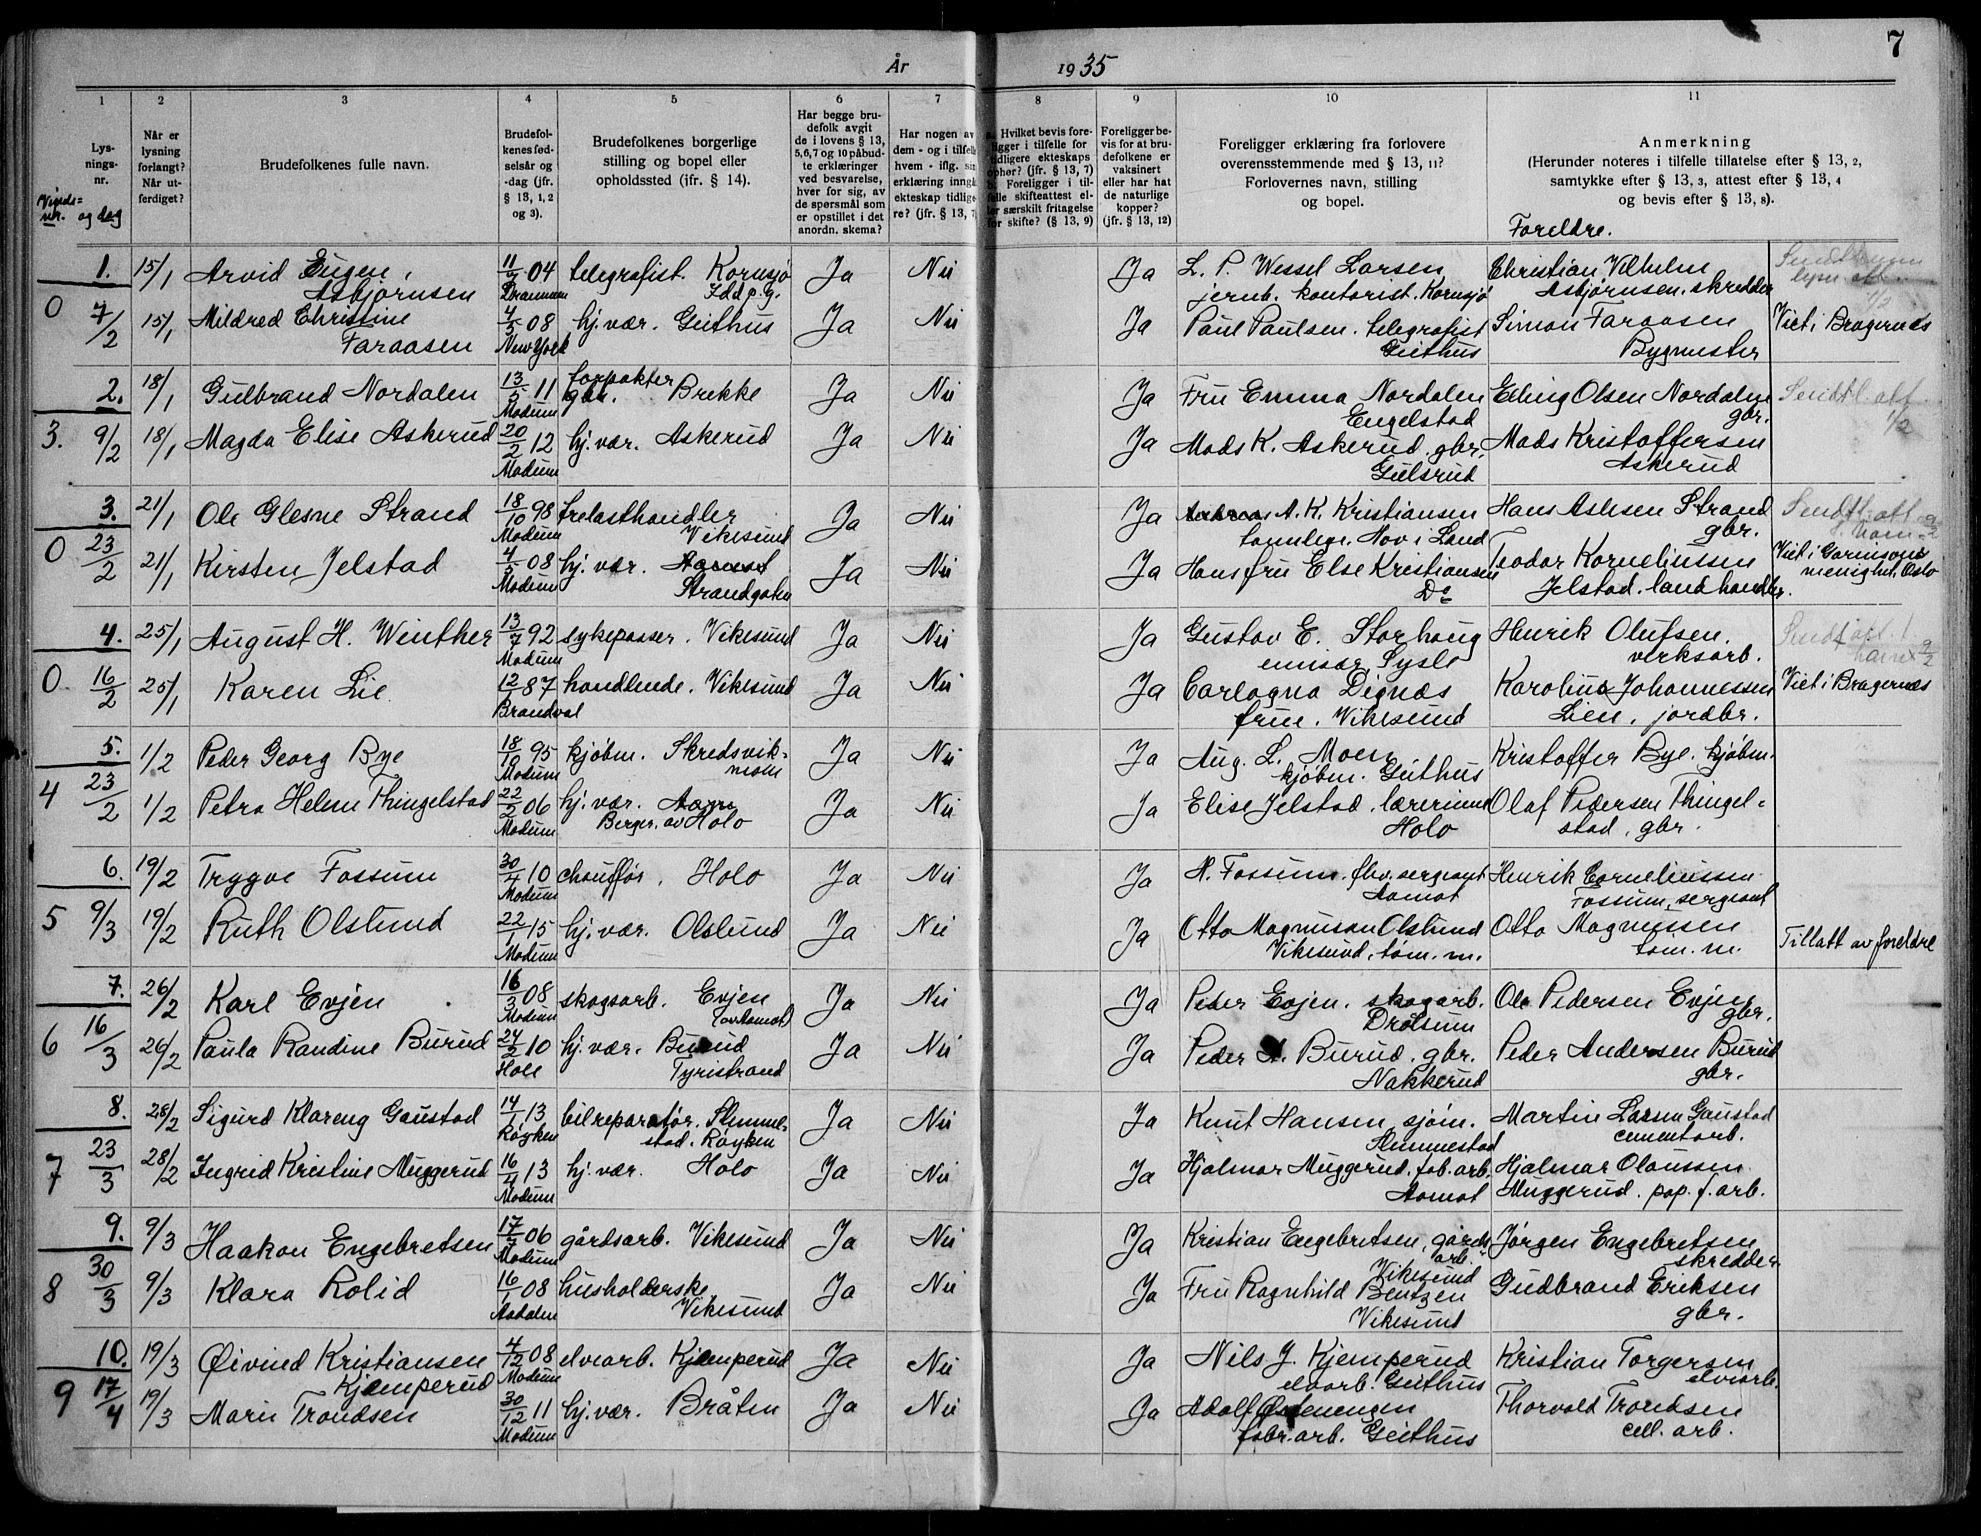 7
År 1935
1 2 3 4 5 6 7 8 9 10 11
Lysningsnr.
Vigselsnr. og dag
Når er lysning forlangt? Når utferdiget?
Brudefolkenes fulle navn.
Brudefolkenes fødselsår og -dag (jfr. § 13, 1, 2 og 3).
Brudefolkenes borgerlige stilling og bopel eller opholdssted (jfr. § 14).
Har begge brudefolk avgit de i lovens § 13, 5, 6, 7 og 10 påbudte erklæringer ved besvarelse, hver for sig, av de spørsmål som er opstillet i det anordn. skema?
Har nogen av dem - og i tilfelle hvem - iflg. sin erklæring inngå ekteskap tidligere? (jfr. § 13, 7
Hvilket bevis foreligger i tilfelle for tidligere ekteskaps ophør? (jfr. § 13, 7) b. Foreligger i tilfelle skifteattest eller særskilt fritagelse for skifte? (§ 13, 9)
Foreligger bevis for at brudefolkene er vaksinert eller har hat de naturlige kopper? (jfr. § 13, 12)
Foreligger erklæring fra forlovere overensstemmende med § 13, 11? Forlovernes navn, stilling og bopel.
Anmerkning (Herunder noteres i tilfelle tillatelse efter § 13, 2, samtykke efter § 13, 3, attest efter § 13, 4 og bevis efter § 13, 8).
Foreldre.
1. 15/1 Arvid Eugen Asbjørnsen 11/7 04 Drammen telegrafist. Kornsjø Idd p.g. Ja Nei Ja L. P. Wessel Larsen jernb. kontorist. Kornsjø Christian Vilhelm Asbjørnsen. skredder
0 7/2 15/1 Mildred Christine Faraasen 4/5 08 New York hj. vær. Geithus Ja Nei Ja Paul Paulsen. telegrafist Geithus Simon Faraasen Bygmester Viet i Bragernes
2. 18/1 Gulbrand Nordalen 13/5 11 Modum forpakter gbr. Brekke Ja Nei Ja Fru Emma Nordalen Engelstad Erling Olsen Nordalen gbr. Sendt l. att. 1/2
3. 9/2 18/1 Magda Elise Askerud 20/2 12 Modum hj. vær. Askerud Ja Nei Ja Mads K. Askerud gbr. Gulsrud Mads Kristoffersen Askerud
3. 21/1 Ole Glesne Strand 18/10 98 Modum trelasthandler Vikesund Ja Nei Ja A. K. Kristiansen tannlege. Hov i Land Hans Aslesen Strand gbr.
0 23/2 21/1 Kirsten Jelstad 4/5 08 Modum hj. vær. Strandgaten Ja Nei Ja Hans fru Else Kristiansen Do Teodor Korneliussen Jelstad. landhandler. Viet i Garnisons menighet, Oslo
4. 25/1 August H. Winther 13/7 92 Modum sykepasser. Vikesund Ja Nei Ja Gustav E. Storhaug emisær Sysle Henrik Olufsen. verksarb.
0. 16/2 25/1 Karen Lie 12/ 87 Brandval handlende. Vikesund Ja Nei Ja Carlagna Dignæs frue. Vikesund Karolius Johannessen Lien. jordbr. Viet i Bragernes
5. 1/2 Peder Georg Bye 18/10 95 Modum kjøbm. Skredsvikmoen Ja Nei Ja Aug. L. Moen kjøbm. Geithus Kristoffer Bye. kjøbm.
4 23/2 1/2 Petra Helene Thingelstad 22/2 06 Modum hj. vær. Berger, av Holo Ja Nei Ja Elise Jelstad, lærerinne Holo Olaf Pedersen Thingelstad, gbr.
6. 19/2 Trygve Fossum 30/4 10 Modum chauffør, Holo Ja Nei Ja H. Fossum. fhv. sergeant Aamot Henrik Corneliussen Fossum, sergeant
5 9/3 19/2 Ruth Olslund 22/1 15 Modum hj. vær. Olslund Ja Nei Ja Otto Magnusson Olslund Vikesund, tøm. m. Otto Magnussen tøm. m. Tillatt av foreldre
7. 26/2 Karl Evjen 16/3 08 Modum skogsarb. Evjen (av Aamot) Ja Nei Ja Peder Evjen. skogarb. Drolsum Ole Pedersen Evjen gbr.
6 16/3 26/2 Paula Randine Burud 24/2 10 Hole hj. vær. Burud Tyristrand Ja Nei Ja Peder A. Burud. gbr. Nakkerud Peder Andersen Burud gbr.
8. 28/2 Sigurd Klareng Gaustad 14/1 13 Røyken bilreparatør. Slemmestad. Røyken Ja Nei Ja Knut Hansen sjøm. Slemmestad Martin Larsen Gaustad cementarb.
7 23/3 28/2 Ingrid Kristine Muggerud 16/4 13 Modum hj. vær. Holo Ja Nei Ja Hjalmar Muggerud, fab. arb. Aamot Hjalmar Olaussen Muggerud. pap. f. arb.
9. 9/3 Haakon Engebretsen 17/7 06 Modum gårdsarb. Vikesund Ja Nei Ja Kristian Engebretsen, gårdsarb. Vikesund Jørgen Engebretsen skredder
8 30/3 9/3 Klara Rolid 16/1 08 Aadalen husholderske Vikesund Ja Nei Ja Fru Ragnhild Bentzen Vikesund Gudbrand Eriksen gbr.
10. 19/3 Øivind Kristiansen Kjemperud 4/12 08 Modum elvearb. Kjemperud Ja Nei Ja Nils J. Kjemperud elvearb. Geithus Kristian Torgersen elvearb.
9 17/4 19/3 Marie Trondsen 30/12 11 Modum hj. vær. Bråten Ja Nei Ja Adolf Østenengen fabr. arb. Geithus Thorvald Trondsen cell. arb.